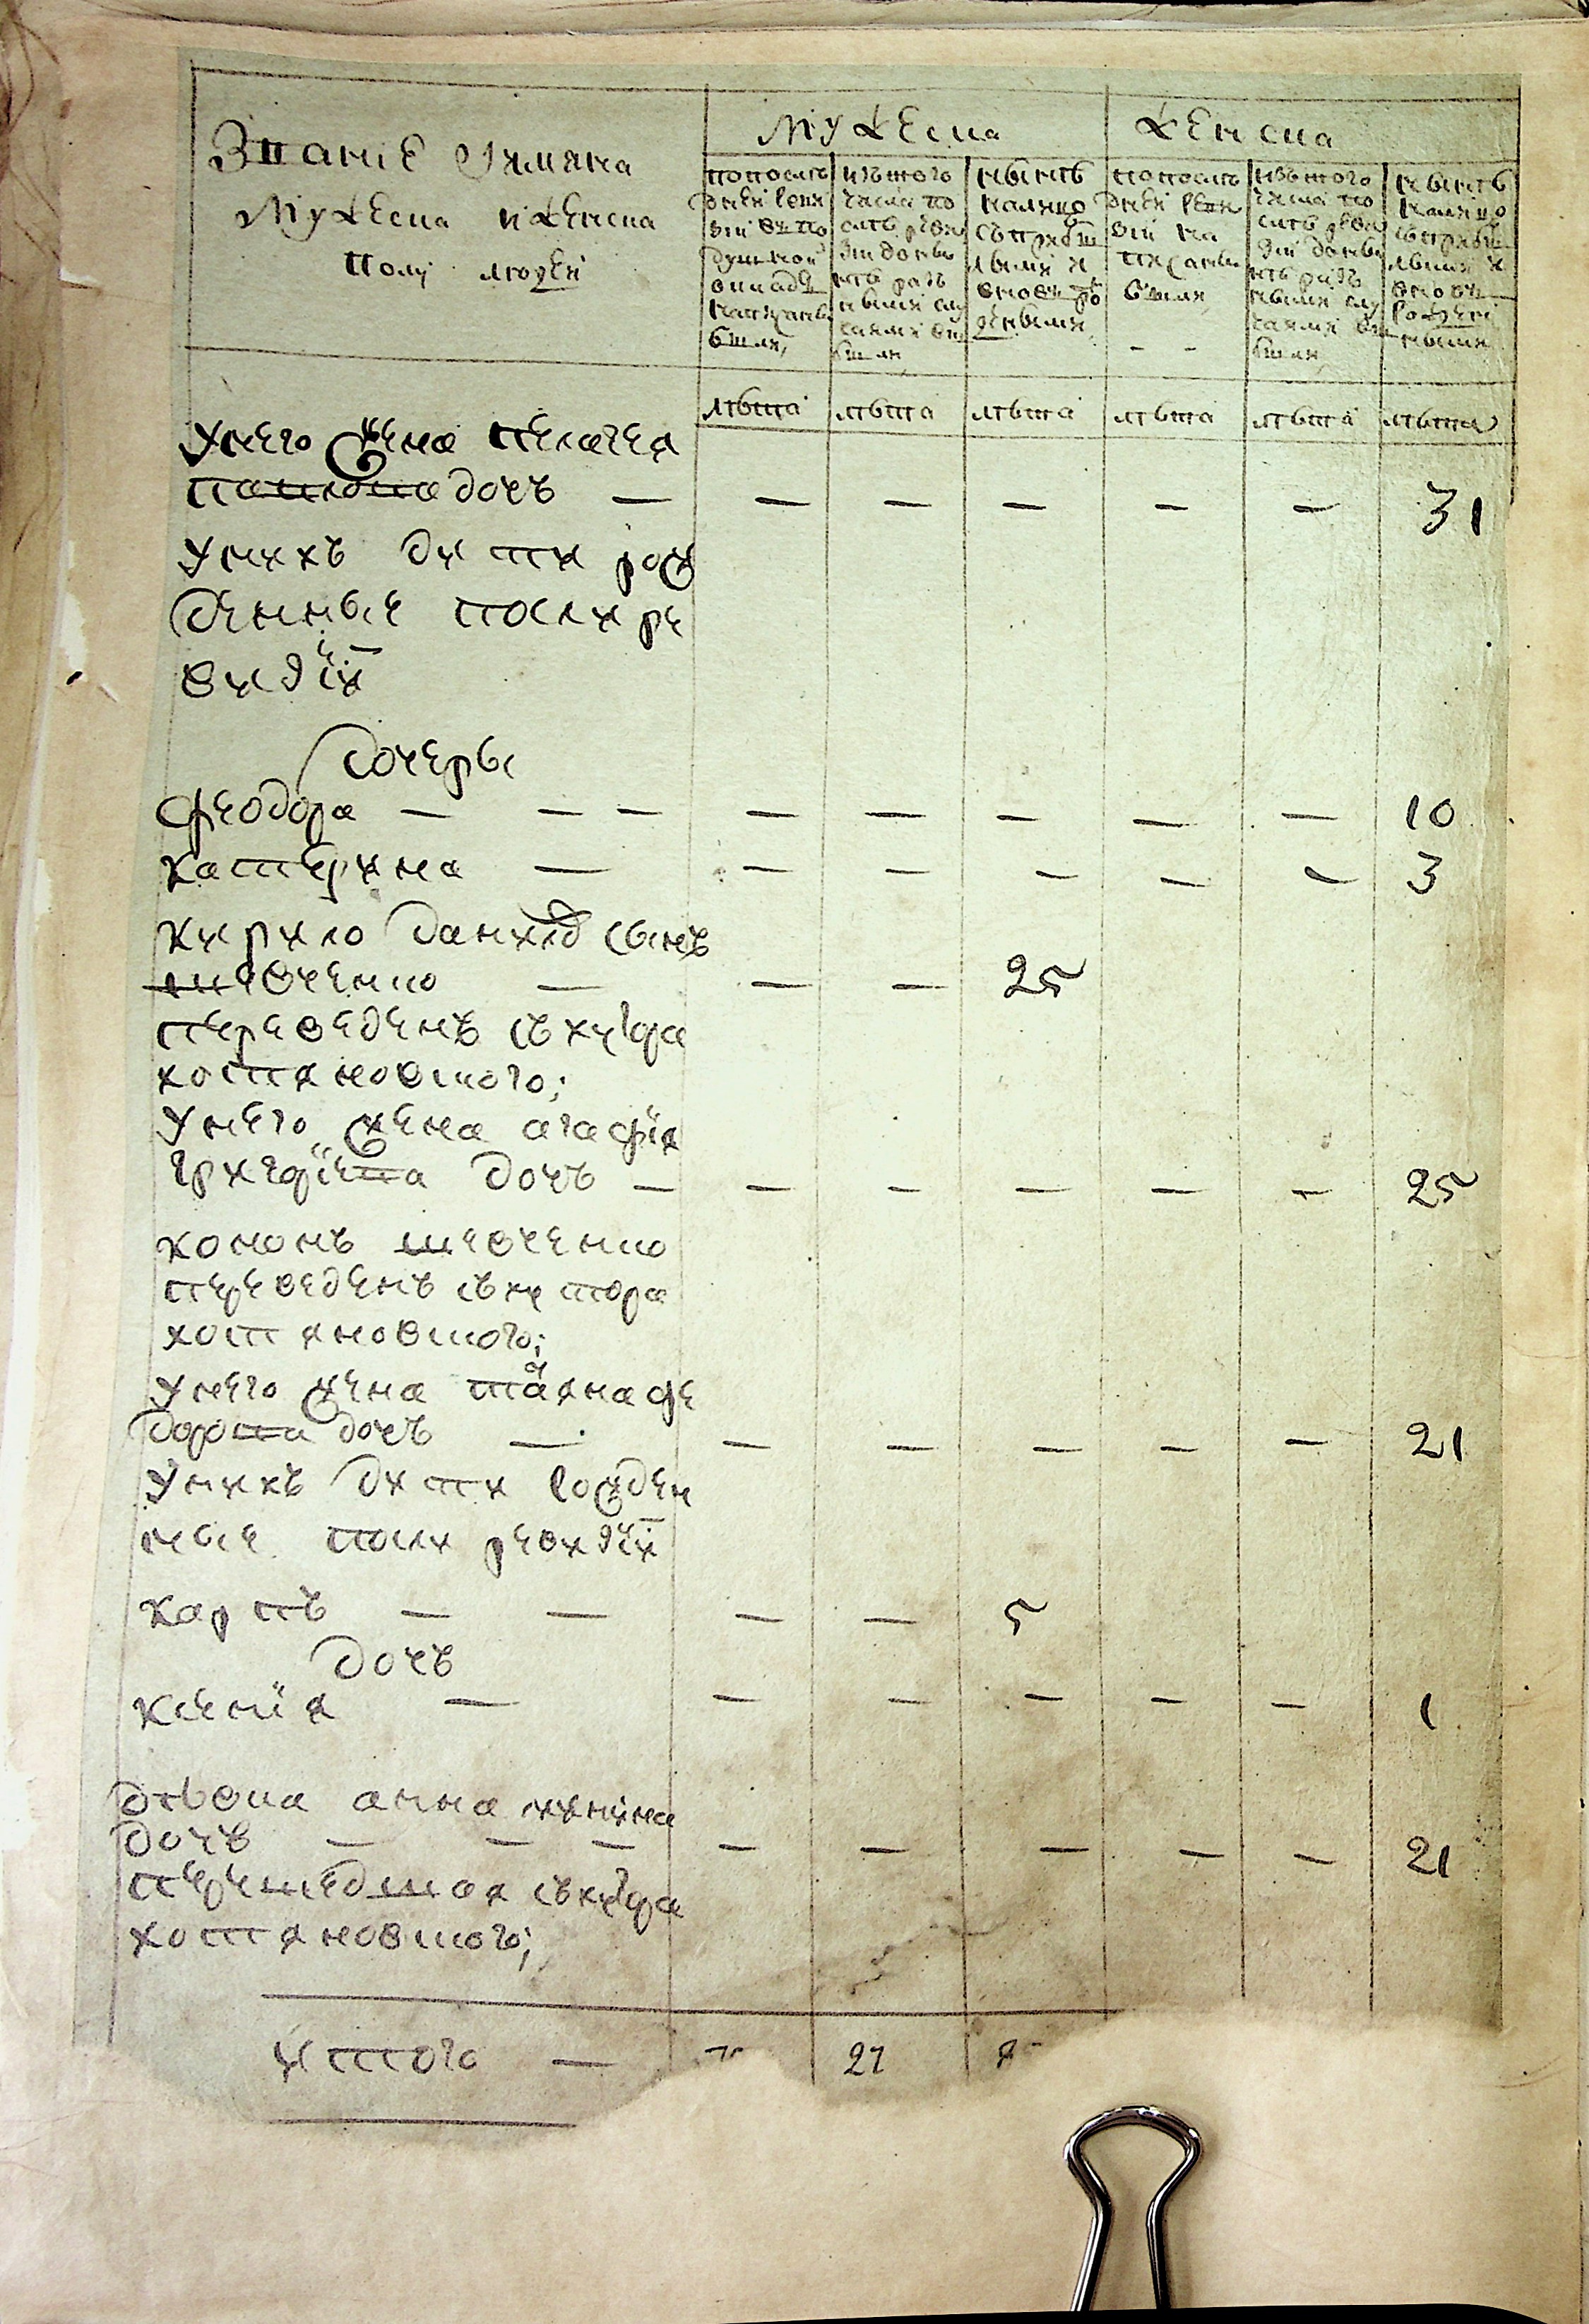 Званіе Имяна
Мужеска и Женска
Полу людей
Мужеска
Женска
попослѣ
дней реви
зіи въ по
душной
окладъ
написанъ
бшли,
изъ того
числа по
слѣ реви
зіи
разъ
ными слу
чаями вы
бшли
нынѣ
налицо
съ прибы
лыми и
вновь ро
жденными
попослѣ
дней реви
зіи на
писанны
бшли,
- -
изъ того
числа по
слѣ реви
зіи
разъ
ными слу
чаями вы
бшли
нынѣ
налицо
съ прибы
лыми и
вновь
рожден
ными
лѣта лѣта лѣта лѣта лѣта лѣта
Унего жена пелагея
павлова дочъ — — — — — — 31
Унихъ дити рож
денные посли ре
визіи
дочеры
феодора — — — — — — — — 10
катерина — — — — — — 3
кирило данилов сынъ
шевченко — — — 25
переведенъ съ хутора
костяновского;
Унего жена агафія
дочъ — — — — — — 25
кононъ шевченко
переведенъ съ хутора
костяновского;
Унего жена татяна фе
дорова дочъ — — — — — — 21
Унихъ дити рожден
ные посли ревизіи
карпъ — — — — 5
дочъ
ксенія — — — — — — 1
дѣвка анна
дочъ — — — — — — — — 21
перешедшая съ хутора
костяновского;
Итого — 27